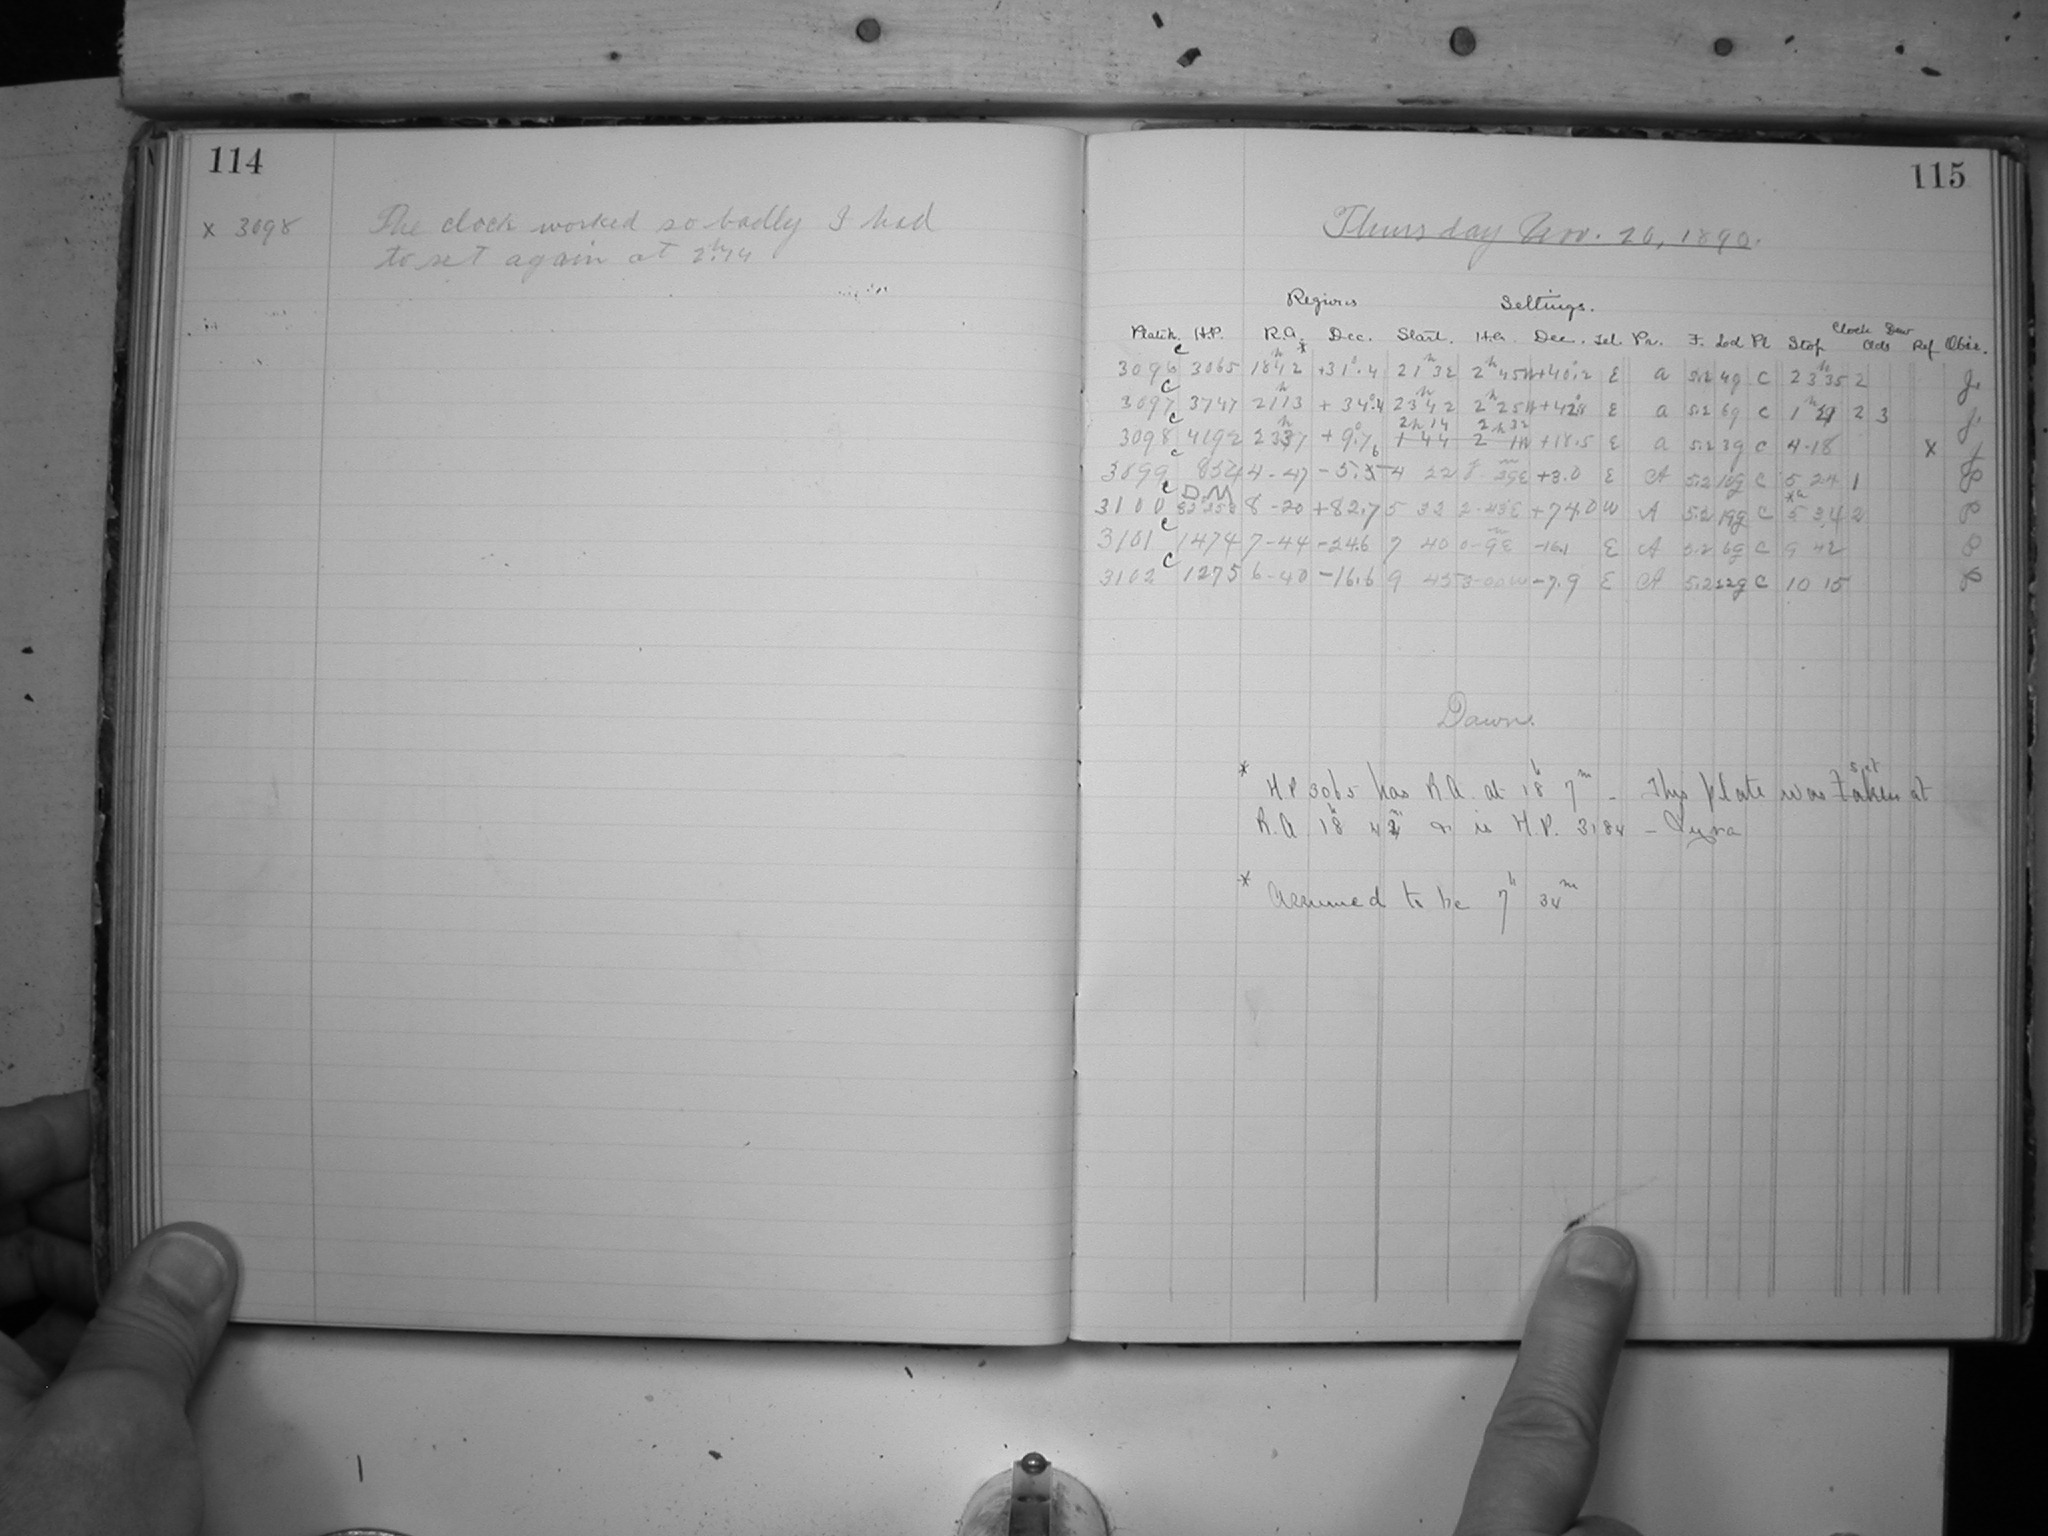 114
x 3098 The clock worked so badly I had
to set again at 2h.14
115
Thursday Nov. 20, 1890.
Regions Settings.
Plate H.P. R.A. Dec. Start. H.A. Dec. Tel. Pr. F. Pl Stop Clock Dew Clds Ref Obsr.
3096 c 3065 18h42 * +31°.4 21h32 2h45W +40°.2 E a 5.2 4g C 23h35 2 J.
3097 c 3747 21h13 +34°.4 23h42 2h25W +42°.8 E a 5.2 6g C 1h 2 3 J.
2h14 2h32
3098 c 4192 23h37 +9°.7 1 44 2 1W +18.5 E a 5.2 3g C 4-18 x J
3099 c 854 4-47 -5. 4 22 +3.0 E A 5.2 C 5 24 1 P
D.M.
3100 c 8-20 +82.7 5 32 +74.0 W A 5.2 19g C 5 34 *a 2 P
3101 c 1474 7-44 -24.6 7 40 0-9mE -16.1 E A 5.2 6g C 9 42 P
3102 c 1275 6-40 -16.6 9 45 3-00W -7.9 E A 5.2 22g C 10 15 P
Dawn.
* H.P. 3065 has R.A. at 18h 7m - This plate was taken set at
R.A. 18h 42m & is H.P. 3184 - Lyra
* Assumed to be 7h 34m